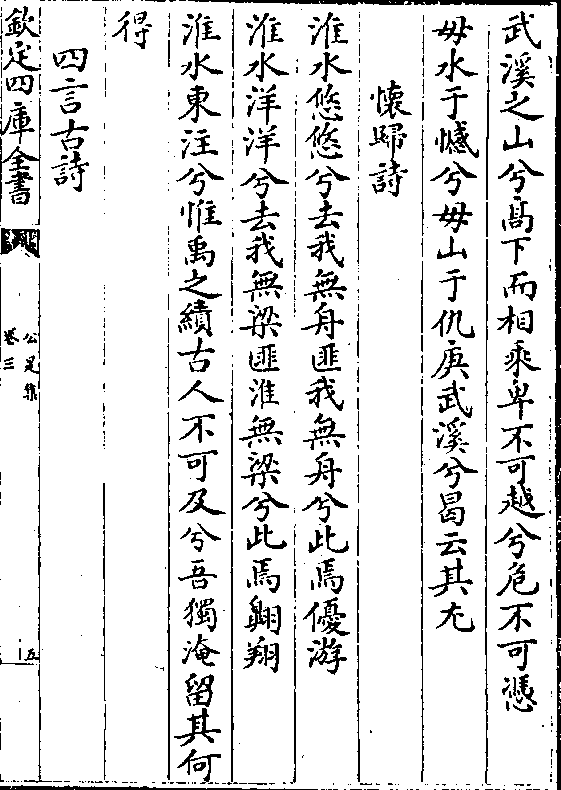 武溪之山兮髙下而相乘卑不可越兮危不可憑
毋水于憾兮毋山于仇庾武溪兮曷云其尤
懐歸詩
淮水悠悠兮去我無舟匪我無舟兮此焉優游
淮水洋洋兮去我無梁匪淮無梁兮此焉翺翔
淮水東注兮惟禹之績古人不可及兮吾獨淹留其何
得
四言古詩
欽定四庫全書
公是集
卷三
五